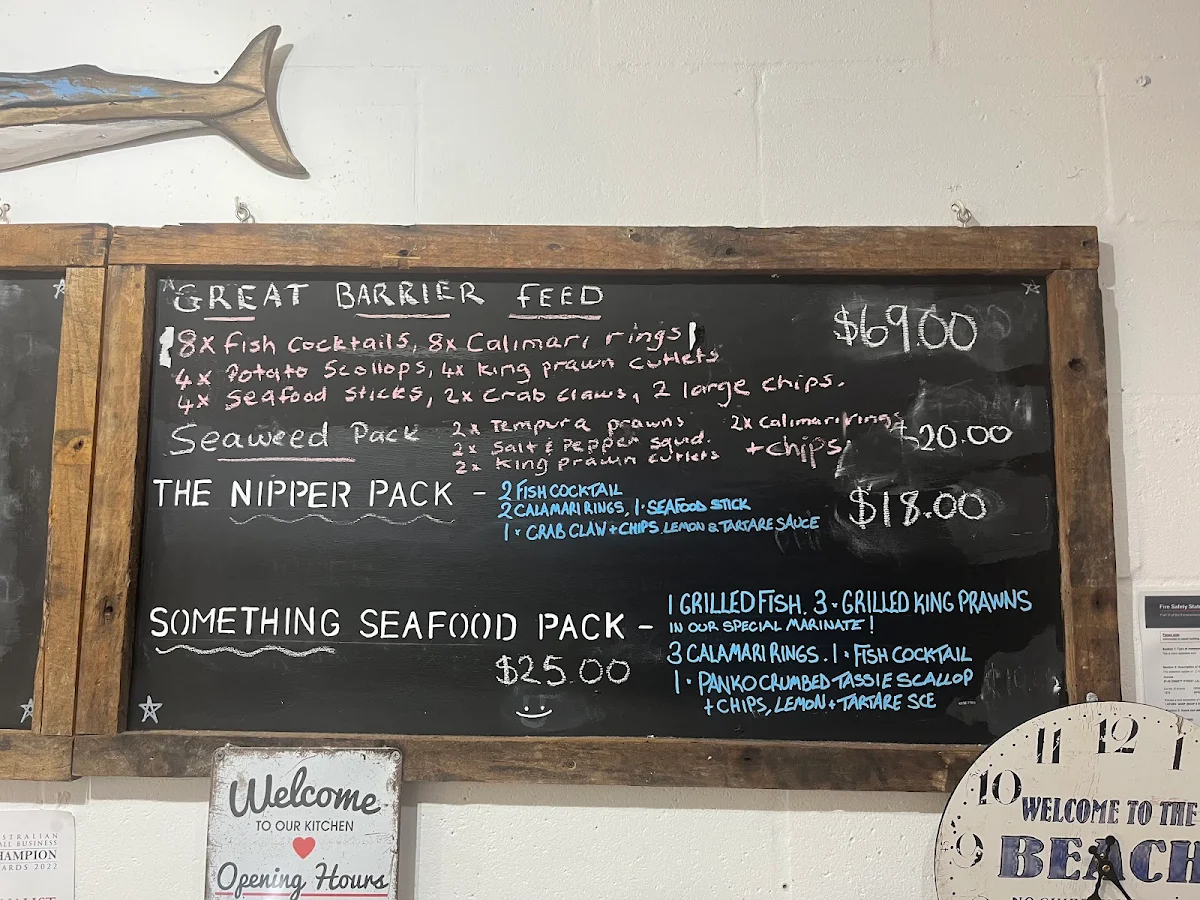 GREAT BARRIER FEED
$69.00
8x Fish Cocktails, 8x Calimari rings
4x Potato Scollops, 4x King prawn cutlets
4x Seafood Sticks, 2x Crab Claws, 2 large chips.
Seaweed Pack
2x Tempura prawns
2x Calimari rings
2x Salt & Pepper Squd.
+chips
2x King prawn cutlets
$20.00
THE NIPPER PACK -
2 FISH COCKTAIL
2 CALAMARI RINGS, 1 · SEAFOOD STICK
1 · CRAB CLAW + CHIPS, LEMON & TARTARE SAUCE
$18.00
SOMETHING SEAFOOD PACK -
$25.00
1 GRILLED FISH. 3 · GRILLED KING PRAWNS
IN OUR SPECIAL MARINATE!
3 CALAMARI RINGS. 1 · FISH COCKTAIL
1 · PANKO CRUMBED TASSIE SCALLOP
+ CHIPS, LEMON + TARTARE SCE
Welcome
TO OUR KITCHEN
Opening Hours
11 12 1
10
9
WELCOME TO THE
BEACH
Fire Safety
2022